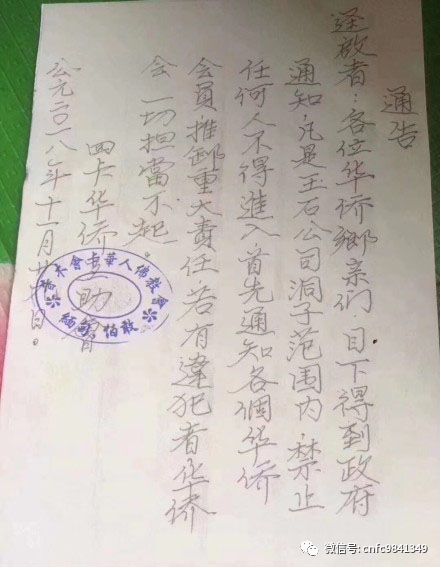 通告
迳啟者：各位华侨鄉亲们，目下得到政府
通知，凡是玉石公司洞子范围内，禁止
任何人不得進入，首先通知各個华侨
会員推卸重大责任若有違犯者华侨
会一切担當不起。
四卡华侨互助會
公元二0一八年十一月廿日。
華人佛教
緬甸帕敢
微信号: cnfc9841349